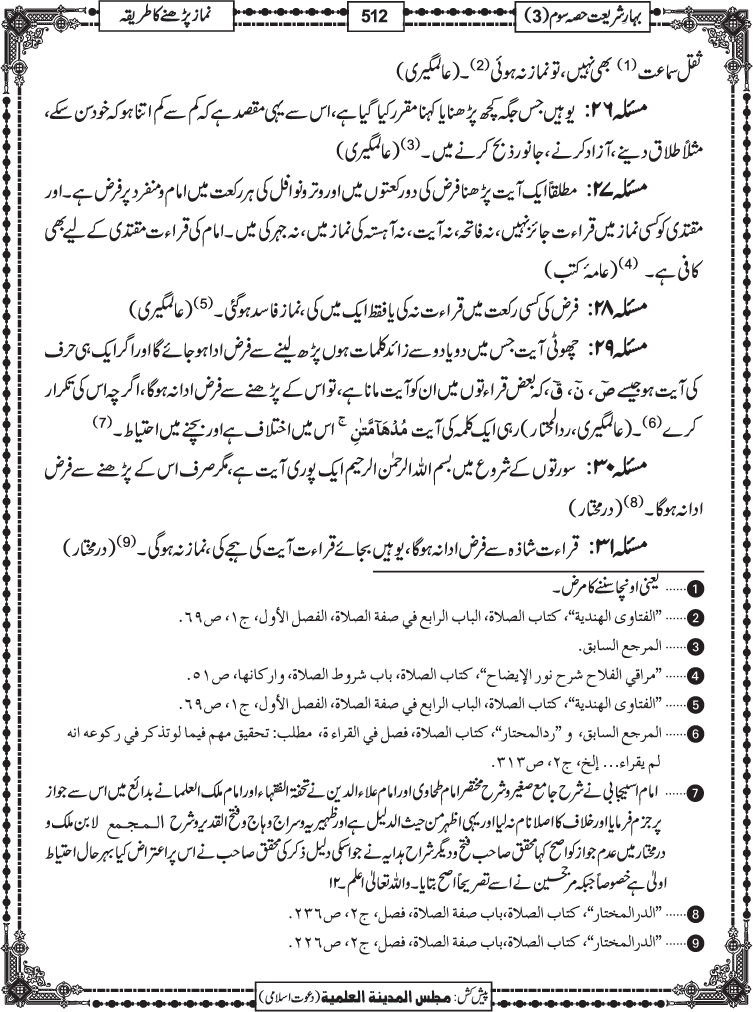 بہارِ شریعت حصہ سوم (3)
512
نماز پڑھنے کا طریقہ
ثقل سماعت (1) بھی نہیں، تو نماز نہ ہوئی (2)۔ (عالمگیری)
مسئلہ ۲۶: یوہیں جس جگہ کچھ پڑھنا یا کہنا مقرر کیا گیا ہے، اس سے یہی مقصد ہے کہ کم سے کم اتنا ہو کہ خود سن سکے،
مثلاً طلاق دینے، آزاد کرنے، جانور ذبح کرنے میں۔ (3) (عالمگیری)
مسئلہ ۲۷: مطلقاً ایک آیت پڑھنا فرض کی دو رکعتوں میں اور وتر و نوافل کی ہر رکعت میں امام و منفرد پر فرض ہے۔ اور
مقتدی کو کسی نماز میں قراءت جائز نہیں، نہ فاتحہ، نہ آیت، نہ آہستہ کی نماز میں، نہ جہر کی میں۔ امام کی قراءت مقتدی کے لیے بھی
کافی ہے۔ (4) (عامۂ کتب)
مسئلہ ۲۸: فرض کی کسی رکعت میں قراءت نہ کی یا فقط ایک میں کی، نماز فاسد ہوگئی۔ (5) (عالمگیری)
مسئلہ ۲۹: چھوٹی آیت جس میں دو یا دو سے زائد کلمات ہوں پڑھ لینے سے فرض ادا ہو جائے گا اور اگر ایک ہی حرف
کی آیت ہو جیسے صٓ، نٓ، قٓ، کہ بعض قراءتوں میں ان کو آیت مانا ہے، تو اس کے پڑھنے سے فرض ادا نہ ہوگا، اگرچہ اس کی تکرار
کرے (6)۔ (عالمگیری، ردالمحتار) رہی ایک کلمہ کی آیت مُدْهَآمَّتٰنِ ۚ اس میں اختلاف ہے اور بچنے میں احتیاط۔ (7)
مسئلہ ۳۰: سورتوں کے شروع میں بسم اللہ الرحمٰن الرحیم ایک پوری آیت ہے، مگر صرف اس کے پڑھنے سے فرض
ادا نہ ہوگا۔ (8) (درمختار)
مسئلہ ۳۱: قراءت شاذہ سے فرض ادا نہ ہوگا، یوہیں بجائے قراءت آیت کی ہجے کی، نماز نہ ہوگی۔ (9) (درمختار)
1 ...... یعنی اونچا سننے کا مرض۔
2 ...... ”الفتاوی الهندية“، کتاب الصلاة، الباب الرابع في صفة الصلاة، الفصل الأول، ج۱، ص۶۹.
3 ...... المرجع السابق.
4 ...... ”مراقي الفلاح شرح نور الإيضاح“، کتاب الصلاة، باب شروط الصلاة، وارکانها، ص۵۱.
5 ...... ”الفتاوی الهندية“، کتاب الصلاة، الباب الرابع في صفة الصلاة، الفصل الأول، ج۱، ص۶۹.
6 ...... المرجع السابق، و ”ردالمحتار“، کتاب الصلاة، فصل في القراءة، مطلب: تحقيق مهم فيما لو تذکر في رکوعه انه
لم يقراء... إلخ، ج۲، ص۳۱۳.
7 ...... امام اسبیجابی نے شرح جامع صغیر و شرح مختصر امام طحاوی اور امام علاء الدین نے تحفۃ الفقہاء اور امام ملک العلما نے بدائع میں اس سے جواز
پر جزم فرمایا اور خلاف کا اصلا نام نہ لیا اور یہی اظہر من حیث الدلیل ہے اور ظہیریہ و سراج وہاج و فتح القدیر و شرح المجمع لابن ملک و
درمختار میں عدم جواز کو اصح کہا محقق صاحب فتح و دیگر شراح ہدایہ نے جو اسکی دلیل ذکر کی محقق صاحب نے اس پر اعتراض کیا بہر حال احتیاط
اولٰی ہے خصوصاً جبکہ مرجحین نے اسے تصریحاً اصح بتایا۔ واللہ تعالیٰ اعلم۔ ۱۲
8 ...... ”الدرالمختار“، کتاب الصلاة، باب صفة الصلاة، فصل، ج۲، ص۲۳۶.
9 ...... ”الدرالمختار“، کتاب الصلاة، باب صفة الصلاة، فصل، ج۲، ص۲۲۶.
پیش کش: مجلس المدینة العلمیة (دعوت اسلامی)